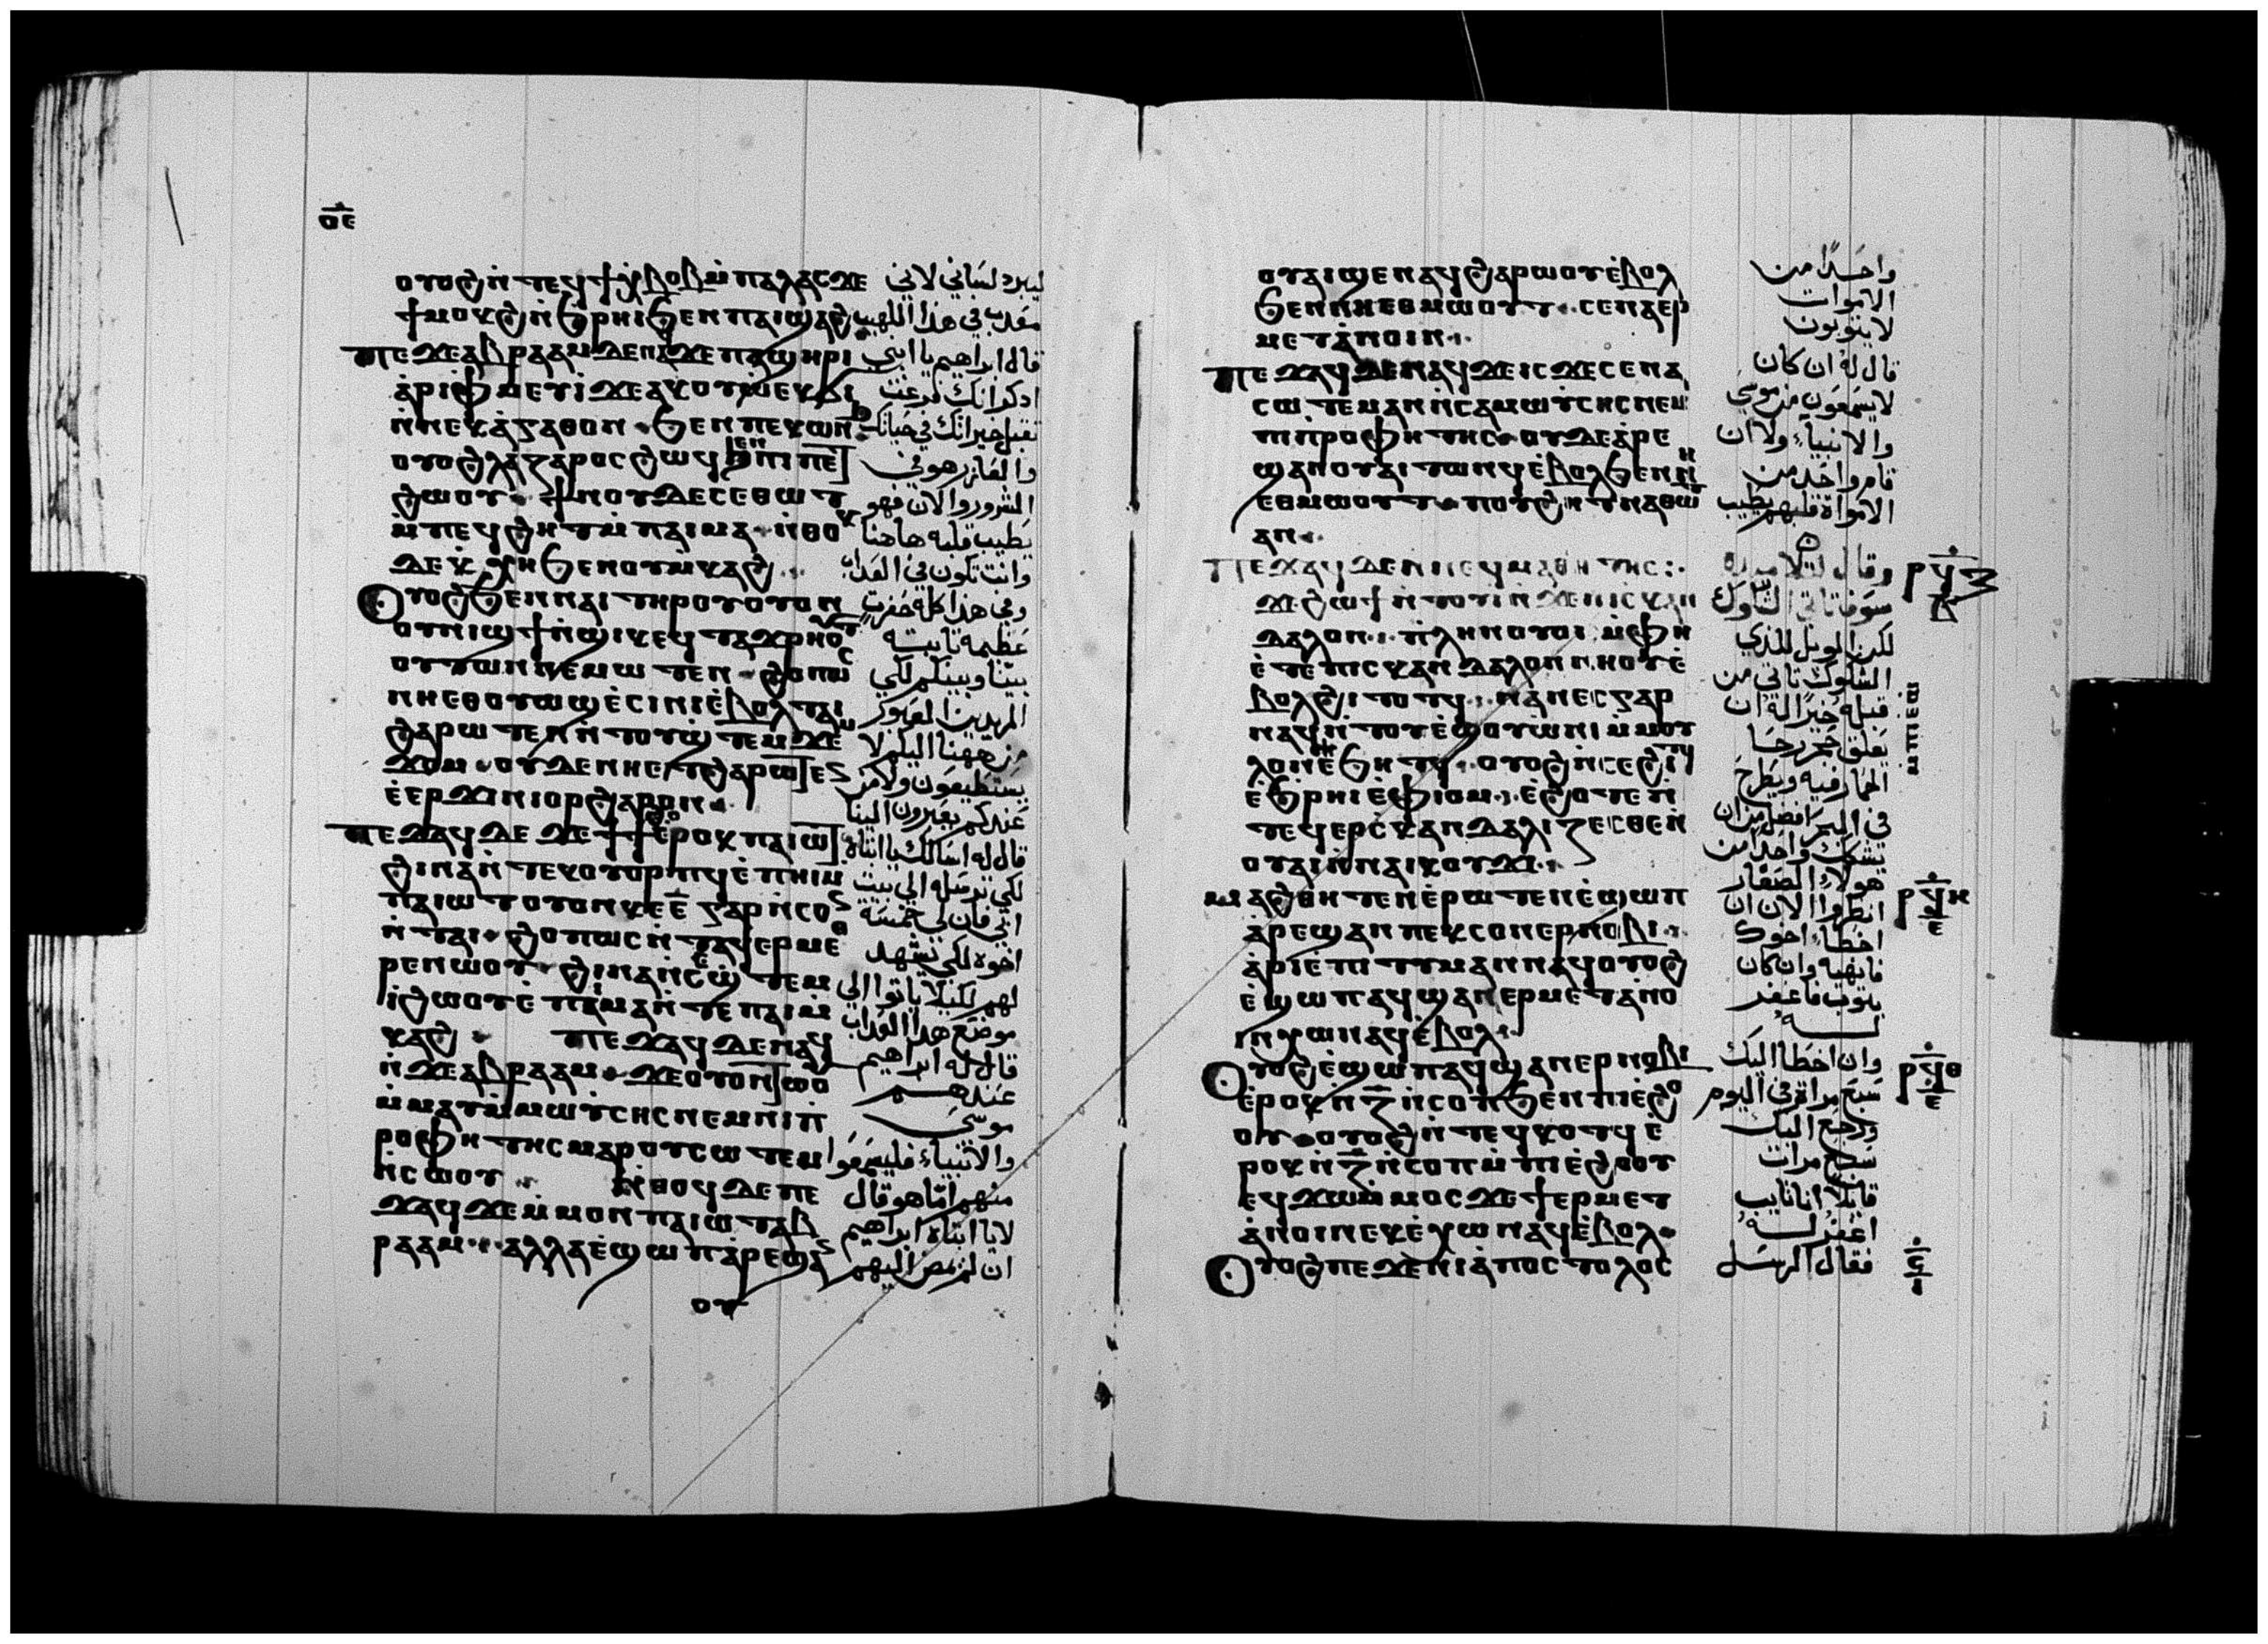 ⲟⲉ
ⲟⲩⲟϩ ⲛ̀ⲧⲉϥϯⲭⲃⲟⲃ ⲙ̀ⲡⲁⲗⲁⲥ ϫⲉ
ϯⲙⲟⲕϩ ⲛ̀ϧⲣⲏⲓ ϧⲉⲛ ⲡⲁⲓϣⲁϩ
ⲡⲉϫⲉ ⲁⲃⲣⲁⲁⲙ ⲇⲉ ⲛⲁϥ ϫⲉ ⲡⲁϣⲏⲣⲓ
ⲁ̀ⲣⲓⲫⲙⲉⲩⲓ̀ ϫⲉ ⲁⲕⲟⲩⲱ ⲉⲕϭⲓ
ⲛ̀ⲛⲉⲕⲁ̀ⲅⲁⲑⲟⲛ ϧⲉⲛ ⲡⲉⲕⲱⲛϧ
ⲟⲩⲟϩ ⲗⲁⲍⲁⲣⲟⲥ ϩⲱϥ ϧⲉⲛ ⲡⲓⲡⲉⲧ
ϩⲱⲟⲩ ϯⲛⲟⲩ ⲇⲉ ⲥⲉⲑⲱⲧ
ⲙ̀ⲡⲉϥϩⲏⲧ ⲙ̀ⲡⲁⲓⲙⲁ ⲛ̀ⲑⲟⲕ
ⲇⲉ ⲕⲭⲏ ϧⲉⲛ ⲟⲩⲙ̀ⲕⲁϩ
ⲟⲩⲟϩ ϧⲉⲛ ⲛⲁⲓ ⲧⲏⲣⲟⲩ ⲟⲩⲟⲛ
ⲟⲩⲛⲓϣϯ ⲛ̀ϣⲓⲕ ⲉϥⲧⲁϫⲣⲏⲟⲩⲧ
ⲟⲩⲧⲱⲛ ⲛⲉⲙⲱⲧⲉⲛ ϩⲟⲡⲱⲥ
ⲛⲏⲉⲑⲟⲩⲱϣ ⲉ̀ⲥⲓⲛⲓ ⲉ̀ⲃⲟⲗ ⲧⲁⲓ
ϩⲁⲣⲱⲧⲉⲛ ⲛ̀ⲧⲟⲩϣ̀ⲧⲉⲙϫⲉⲙ
ϫⲟⲙ ⲟⲩⲇⲉ ⲛⲏⲉⲧϩⲁⲣⲱⲧⲉⲛ
ⲉ̀ⲉⲣϫⲓⲛⲓⲟⲣ ϩⲁⲣⲟⲛ
ⲡⲉϫⲁϥ ⲇⲉ ϫⲉ ϯϯϩⲟ ⲉ̀ⲣⲟⲕ ⲡⲁⲓⲱⲧ
ϩⲓⲛⲁ ⲛ̀ⲧⲉⲕⲟⲩⲟⲣⲡϥ ⲉ̀ⲡⲏⲓ ⲙ
ⲡⲁⲓⲱⲧ ⲟⲩⲟⲛ ⲕⲉⲉ̅ ⲅⲁⲣ ⲛ̀ⲥⲟⲛ
ⲛ̀ⲧⲁⲓ ϩⲟⲡⲱⲥ ⲛ̀ⲧⲁϥⲉⲣⲙⲉⲑ
ⲣⲉ ⲛⲱⲟⲩ ϩⲓⲛⲁ ⲛ̀ⲥⲉϣ̀ⲧⲉⲙ
ⲓ̀ ϩⲱⲟⲩ ⲉ̀ⲡⲁⲓⲙⲁ ⲛ̀ⲧⲉ ⲡⲁⲓⲙ̀
ⲕⲁϩ ⲡⲉϫⲁϥ ⲇⲉ ⲛⲁϥ
ⲛ̀ϫⲉ ⲁⲃⲣⲁⲁⲙ ϫⲉ ⲟⲩⲟⲛⲧⲱⲟⲩ
ⲙ̀ⲙⲁⲩ ⲙ̀ⲙⲱⲩ̀ⲥⲏⲥ ⲛⲉⲙ ⲛⲓⲡ̀
ⲣⲟⲫⲏⲧⲏⲥ ⲙⲁⲣⲟⲩⲥⲱⲧⲉⲙ
ⲛ̀ⲥⲱⲟⲩ ⲛ̀ⲑⲟϥ ⲇⲉ ⲡⲉ
ϫⲁϥ ϫⲉ ⲙ̀ⲙⲟⲛ ⲡⲁⲓⲱⲧ ⲁⲃ
ⲣⲁⲁⲙ ⲁⲗⲗⲁ ⲉ̀ϣⲱⲡ ⲁ̀ⲣⲉϣⲁⲛ
ⲟⲩ
ليبرد لساني لاني
معذب في هذا اللهيب
قال ابراهيم يا ابني
اذكر انك فرغت
تقبل خيراتك في حياتك
والعازر هو في
الشرور والان فهو
يطيب قلبه هاهنا
وانت تكون في العذاب
وفي هذا كله حفرت
عظيمه ثابته
بيننا وبينكم لكي
المريدين العبور
من ههنا اليكم لا
يستطيعون ولا من
عندكم يعبرون الينا
قال له اسالك يا ابتاه
لكي ترسله الي بيت
ابي فان لي خمسة
اخوه لكي يشهد
لهم لكيلا ياتوا الي
موضع هذا العذاب
قال له ابراهيم
عندهم
موسى
والانبياء فليسمعوا
منهم اما هو قال
لا يا ابتاه ابراهيم
ان لم يمض اليهم
ⲟⲩⲁⲓ ϣⲉⲛⲁϥ ϩⲁⲣⲱⲟⲩ ⲉ̀ⲃⲟⲗ
ϧⲉⲛ ⲛⲏⲉⲑⲙⲱⲟⲩⲧ ⲥⲉⲛⲁⲉⲣ
ⲙⲉⲧⲁⲛⲟⲓⲛ
ⲡⲉϫⲁϥ ⲇⲉ ⲛⲁϥ ϫⲉ ⲓⲥϫⲉ ⲥⲉⲛⲁ
ⲥⲱⲧⲉⲙ ⲁⲛ ⲛ̀ⲥⲁ ⲙⲱⲩ̀ⲥⲏⲥ ⲛⲉⲙ
ⲛⲓⲡ̀ⲣⲟⲫⲏⲧⲏⲥ ⲟⲩⲇⲉ ⲁ̀ⲣⲉ
ϣⲁⲛ ⲟⲩⲁⲓ ⲧⲱⲛϥ ⲉ̀ⲃⲟⲗ ϧⲉⲛ ⲛⲏ
ⲉⲑⲙⲱⲟⲩⲧ ⲡⲟⲩϩⲏⲧ ⲛⲁⲑⲱⲧ
ⲁⲛ
ⲡⲉϫⲁϥ ⲇⲉ ⲛ̀ⲛⲉϥⲙⲁⲑⲏⲧⲏⲥ
ϫⲉ ϩⲱϯ ⲛ̀ⲧⲟⲩⲓ̀ ⲛ̀ϫⲉ ⲛⲓⲥⲕⲁⲛ
ⲇⲁⲗⲟⲛ ⲡ̀ⲗⲏⲛ ⲟⲩⲟⲓ ⲙ̀ⲫⲏ
ⲉ̀ⲧⲉ ⲡⲓⲥⲕⲁⲛⲇⲁⲗⲟⲛ ⲛⲏⲟⲩ ⲉ̀
ⲃⲟⲗ ϩⲓⲧⲟⲧϥ ⲛⲁⲛⲉⲥ ⲅⲁⲣ
ⲛⲁϥ ⲛ̀ⲧⲟⲩⲉ̀ϣ ⲟⲩⲱ̀ⲛⲓ ⲙ̀ⲙⲟⲩ
ⲗⲟⲛ ⲉ̀ϧⲏⲧϥ ⲟⲩⲟϩ ⲛ̀ⲥⲉϩⲓⲧϥ
ⲉ̀ϧⲣⲏⲓ ⲉ̀ⲫⲓⲟⲙ ⲉ̀ϩⲟⲧⲉ ⲛ̀
ⲧⲉϥⲉⲣⲥⲕⲁⲛⲇⲁⲗⲓⲍⲉⲥⲑⲉ ⲛ̀
ⲟⲩⲁⲓ ⲛ̀ⲛⲁⲓⲕⲟⲩϫⲓ
ⲙⲁϩⲑⲏⲧⲉⲛ ⲉ̀ⲣⲱⲧⲉⲛ ⲉ̀ϣⲱⲡ
ⲁ̀ⲣⲉϣⲁⲛ ⲡⲉⲕⲥⲟⲛ ⲉⲣⲛⲟⲃⲓ
ⲁ̀ⲣⲓⲉ̀ⲡⲓⲧⲓⲙⲁⲛ ⲛⲁϥ ⲟⲩⲟϩ
ⲉ̀ϣⲱⲡ ⲁϥϣⲁⲛⲉⲣⲙⲉⲧⲁⲛⲟ
ⲓⲛ ⲭⲱ ⲛⲁϥ ⲉ̀ⲃⲟⲗ
ⲟⲩⲟϩ ⲉ̀ϣⲱⲡ ⲁϥϣⲁⲛⲉⲣⲛⲟⲃⲓ
ⲉ̀ⲣⲟⲕ ⲛ̀ⲍ̅ ⲛ̀ⲥⲟⲡ ϧⲉⲛ ⲡⲓⲉ̀ϩⲟ
ⲟⲩ ⲟⲩⲟϩ ⲛ̀ⲧⲉϥⲕⲟⲧϥ ⲉ̀
ⲣⲟⲕ ⲛ̀ⲍ̅ ⲛ̀ⲥⲟⲡ ⲙ̀ⲡⲓⲉ̀ϩⲟⲟⲩ
ⲉϥϫⲱ ⲙ̀ⲙⲟⲥ ϫⲉ ϯⲉⲣⲙⲉⲧ
ⲁⲛⲟⲓⲛ ⲉⲕⲉ̀ⲭⲱ ⲛⲁϥ ⲉ̀ⲃⲟⲗ
ⲟⲩⲟϩ ⲡⲉϫⲉ ⲛⲓⲁ̀ⲡⲟⲥⲧⲟⲗⲟⲥ
واحدًا من
الاموات
لا يتوبون
قال له ان كان
لا يسمعون من موسي
والانبياء ولا ان
قام واحد من
الامواة قلبهم يطيب
وقال لتلاميده
سوف تاتي الشكوك
لكن الويل للذي
الشكوك تاتي من
قبله خيرًا له ان
يعلق حجر رحا
الحمار فيه ويطرح
في البحر افضل من ان
يشكك واحدا من
هولاء الصغار
انظروا الان ان
اخطاء اخوك
فانهيه وان كان
يتوب فاغفر
له
وان اخطا اليك
سبع مراة في اليوم
ورجع اليك
سبع مرات
قايلا انا تايب
اغفر له
فقال الرسل
ⲣϥⲍ
ⲣϥⲏ
ⲉ
ⲣϥⲑ
ⲉ